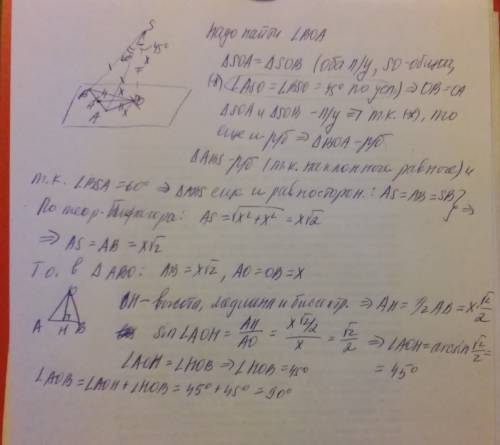 S
45°
B
H
A
O
x
x
Надо найти ∠BOA
ΔSOA = ΔSOB (оба п/у, SO-общая,
(*) ∠ASO = ∠BSO = 45° по усл) ⇒ OB=OA
ΔSOA и ΔSOB - п/у ⇒ т.к. (*), то
еще и р/б ⇒ ΔBOA - р/б.
ΔABS - р/б (т.к. наклонные равны) и
т.к. ∠BSA = 60° ⇒ ΔABS еще и равносторон.: AS=AB=SB} ⇒
По теор. Пифагора: AS = √(x²+x²) = x√2
⇒ AS = AB = x√2
То. в ΔABO: AB = x√2, AO=OB=x
O
A H B
OH - высота, медиана и биссектр. ⇒ AH = 1/2 AB = x√2/2
sin∠AOH = AH/AO = (x√2/2)/x = √2/2 ⇒ ∠AOH = arcsin √2/2 =
= 45°
∠AOH = ∠HOB ⇒ ∠HOB = 45°
∠AOB = ∠AOH + ∠HOB = 45° + 45° = 90°